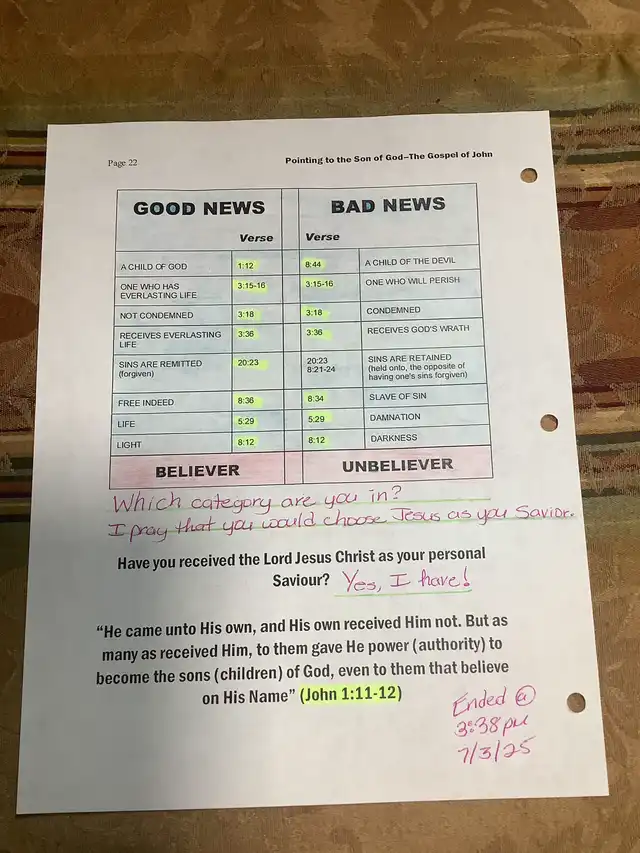 Page 22 Pointing to the Son of God–The Gospel of John
GOOD NEWS BAD NEWS
Verse Verse
A CHILD OF GOD 1:12 8:44 A CHILD OF THE DEVIL
ONE WHO HAS 3:15-16 3:15-16 ONE WHO WILL PERISH
EVERLASTING LIFE
NOT CONDEMNED 3:18 3:18 CONDEMNED
RECEIVES EVERLASTING 3:36 3:36 RECEIVES GOD'S WRATH
LIFE
SINS ARE REMITTED 20:23 20:23 SINS ARE RETAINED
(forgiven) 8:21-24 (held onto, the opposite of
having one's sins forgiven)
FREE INDEED 8:36 8:34 SLAVE OF SIN
LIFE 5:29 5:29 DAMNATION
LIGHT 8:12 8:12 DARKNESS
BELIEVER UNBELIEVER
Which category are you in?
I pray that you would choose Jesus as you Savior.
Have you received the Lord Jesus Christ as your personal
Saviour? Yes, I have!
“He came unto His own, and His own received Him not. But as
many as received Him, to them gave He power (authority) to
become the sons (children) of God, even to them that believe
on His Name” (John 1:11-12)
Ended @
3:38pm
7/3/25